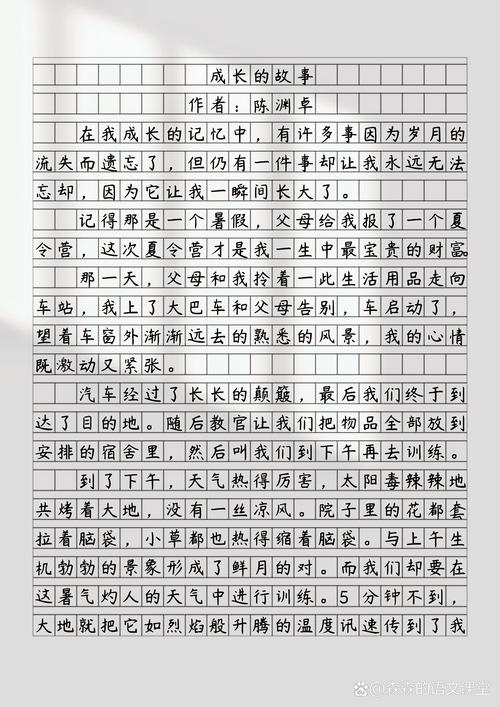 成长的故事
作者：陈渊卓
在我成长的记忆中，有许多事因为岁月的
流失而遗忘了，但仍有一件事却让我永远无法
忘却，因为它让我一瞬间长大了。
记得那是一个暑假，父母给我报了一个夏
令营，这次夏令营才是我一生中最宝贵的财富。
那一天，父母和我拎着一此生活用品走向
车站，我上了大巴车和父母告别，车启动了，
望着车窗外渐渐远去的熟悉的风景，我的心情
既激动又紧张。
汽车经过了长长的颠簸，最后我们终于到
达了目的地。随后教官让我们把物品全部放到
安排的宿舍里，然后叫我们到下午再去训练。
到了下午，天气热得厉害，太阳毒辣辣地
共烤着大地，没有一丝凉风。院子里的花都套
拉着脑袋，小草都也热得缩着脑袋。与上午生
机勃勃的景象形成了鲜月的对。而我们却要在
这暑气灼人的天气中进行训练。5分钟不到，
大地就把它如烈焰般升腾的温度讯速传到了我
森森的语文课堂